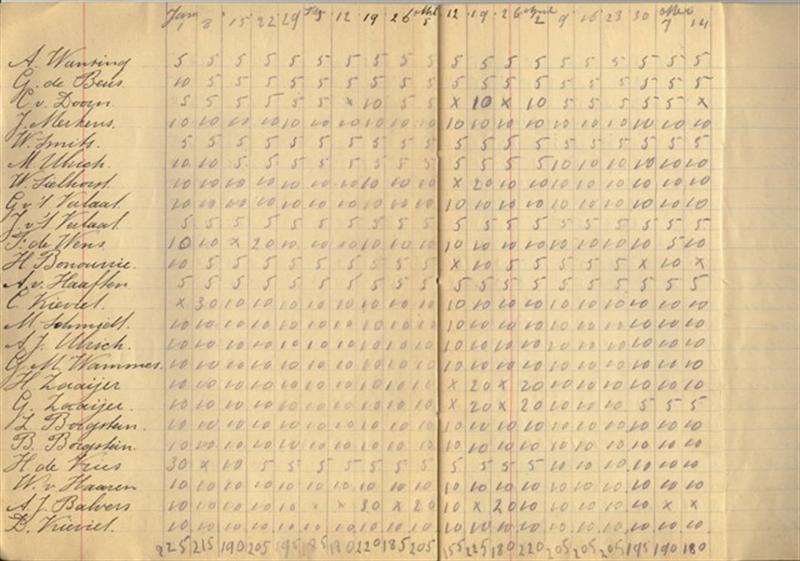 Jan 1 8 15 22 29 Feb 5 12 19 26 Mrt 5 12 19 26 April 2 9 16 23 30 Mei 7 14
A. Wansing 5 5 5 5 5 5 5 5 5 5 5 5 5 5 5 5 5 5 5 5
G. de Beus 10 5 5 5 5 5 5 5 5 5 5 5 5 5 5 5 5 5 5 5
C v. Doorn 5 5 5 5 5 5 x 10 5 5 x 10 x 10 5 5 5 5 5 x
J. Merkens. 10 10 10 10 10 10 10 10 10 10 10 10 10 10 10 10 10 10 10 10
W. Smits. 5 5 5 5 5 5 5 5 5 5 5 5 5 5 5 5 5 5 5 5
M. Ulrich. 10 10 5 5 5 5 5 5 5 5 5 5 5 5 10 10 10 10 10 10
W. 10 10 10 10 10 10 10 10 10 10 x 20 10 10 10 10 10 10 10 10
G v 't 10 10 10 10 10 10 10 10 10 10 10 10 10 10 10 10 10 10 10 10
J. v 't 5 5 5 5 5 5 5 5 5 5 5 5 5 5 5 5 5 5 5 5
de Wens 10 10 x 20 10 10 10 10 10 10 10 10 10 10 10 10 10 10 5 10
H 10 5 5 5 5 5 5 5 5 5 x 10 5 5 5 5 5 x 10 x
A. v. Haaften 5 5 5 5 5 5 5 5 5 5 5 5 5 5 5 5 5 5 5 5
C. Krieviet x 30 10 10 10 10 10 10 10 10 10 10 10 10 10 10 10 10 10 10
M. Schmidt. 10 10 10 10 10 10 10 10 10 10 10 10 10 10 10 10 10 10 10 10
A. J. Ulrich. 10 10 10 10 10 10 10 10 10 10 10 10 10 10 10 10 10 10 10 10
G. M. Wammes. 10 10 10 10 10 10 10 10 10 10 10 10 10 10 10 10 10 10 10 10
H. Zaaijer 10 10 10 10 10 10 10 10 10 10 x 20 x 20 10 10 10 10 10 10
G. Zaaijer. 10 10 10 10 10 10 10 10 10 10 x 20 x 20 10 10 10 5 5 5
Z. Borgstein. 10 10 10 10 10 10 10 10 10 10 10 10 10 10 10 10 10 10 10 10
B. Borgstein. 10 10 10 10 10 10 10 10 10 10 10 10 10 10 10 10 10 10 10 10
H de Vries 30 x 10 5 5 5 5 5 5 5 5 5 5 5 10 10 10 10 10 10
W. v. Haaren 10 10 10 10 10 10 10 10 10 10 10 10 10 10 10 10 10 10 10 10
A. J. Balvers 10 10 10 10 10 x x 30 x 20 10 x 20 10 10 10 10 10 x x
Krieviet. 10 10 10 10 10 10 10 10 10 10 10 10 10 10 10 10 10 10 10 10
225 215 190 205 195 185 180 220 185 205 155 225 180 220 205 205 205 195 190 180